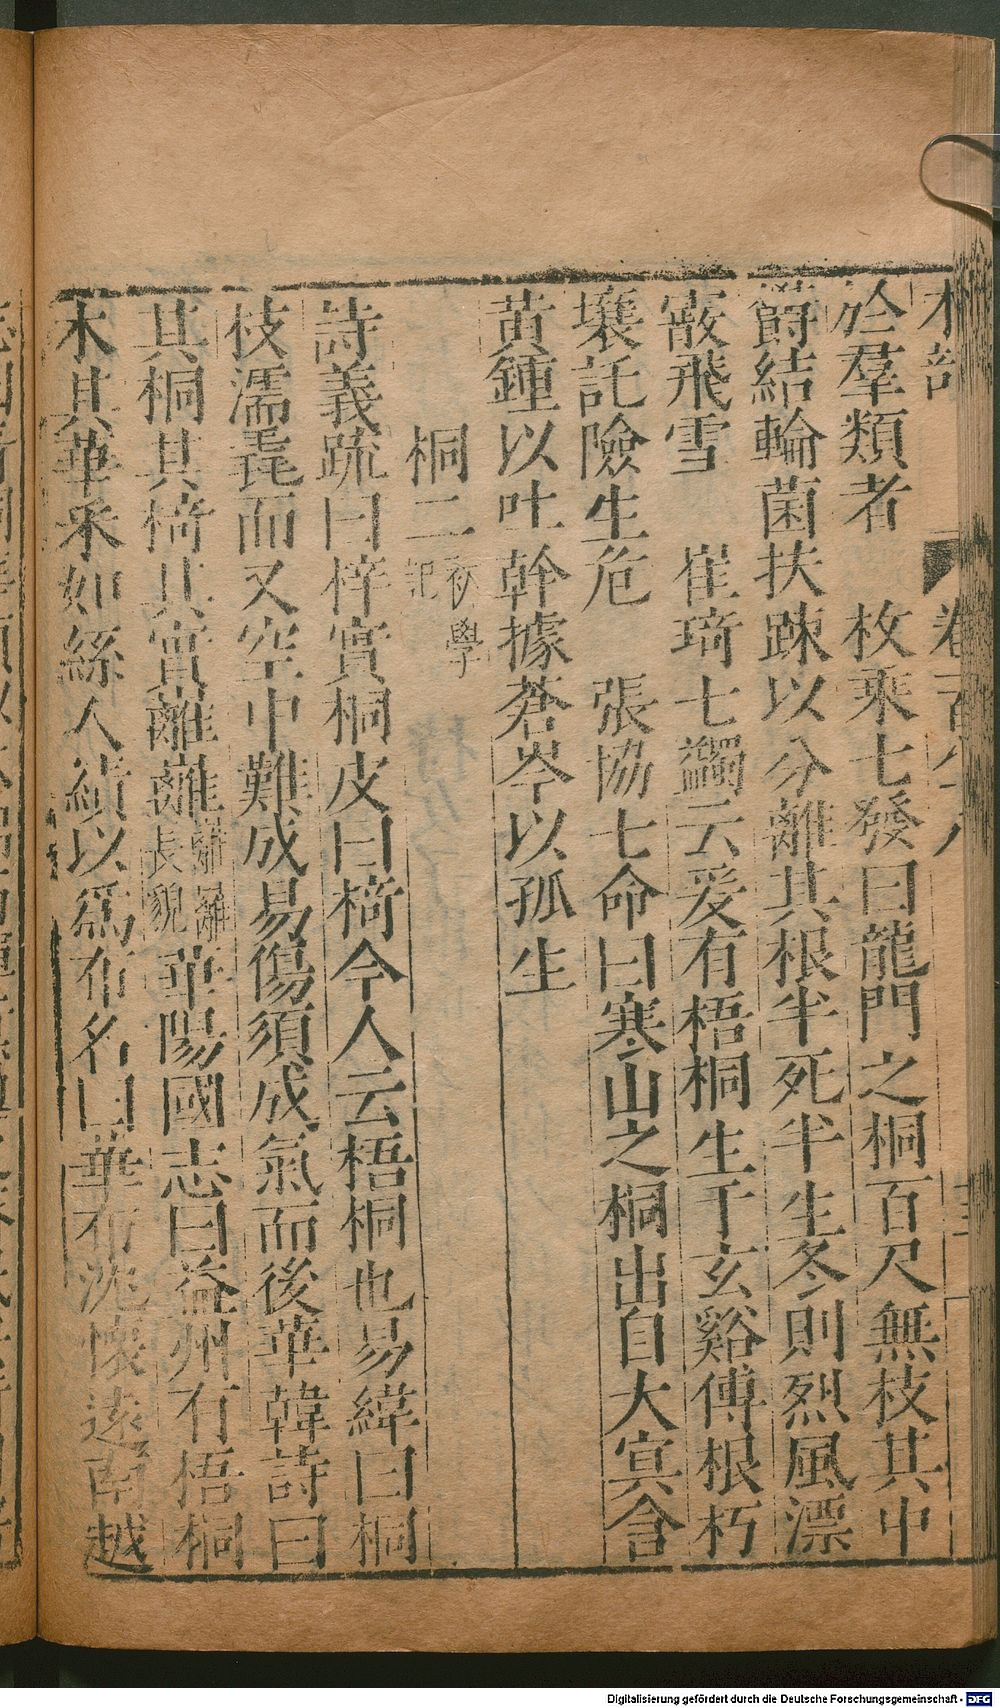 木部　卷百八十八
於羣類者　枚乘七發曰龍門之桐百尺無枝其中
鬱結輪菌扶踈以分離其根半死半生冬則烈風漂
霰飛雪　崔琦七蠲云爰有梧桐生于玄谿傅根朽
壤託險生危　張協七命曰寒山之桐出自大冥含
黃鍾以吐幹據蒼岑以孤生
桐二初學記
詩義疏曰梓實桐皮曰椅今人云梧桐也易緯曰桐
枝濡毳而又空中難成易傷須成氣而後華韓詩曰
其桐其椅其實離離離離長貌華陽國志曰益州有梧桐
木其華采如絲人績以爲布名曰華布沈懷遠南越
Digitalisierung gefördert durch die Deutsche Forschungsgemeinschaft - DFG